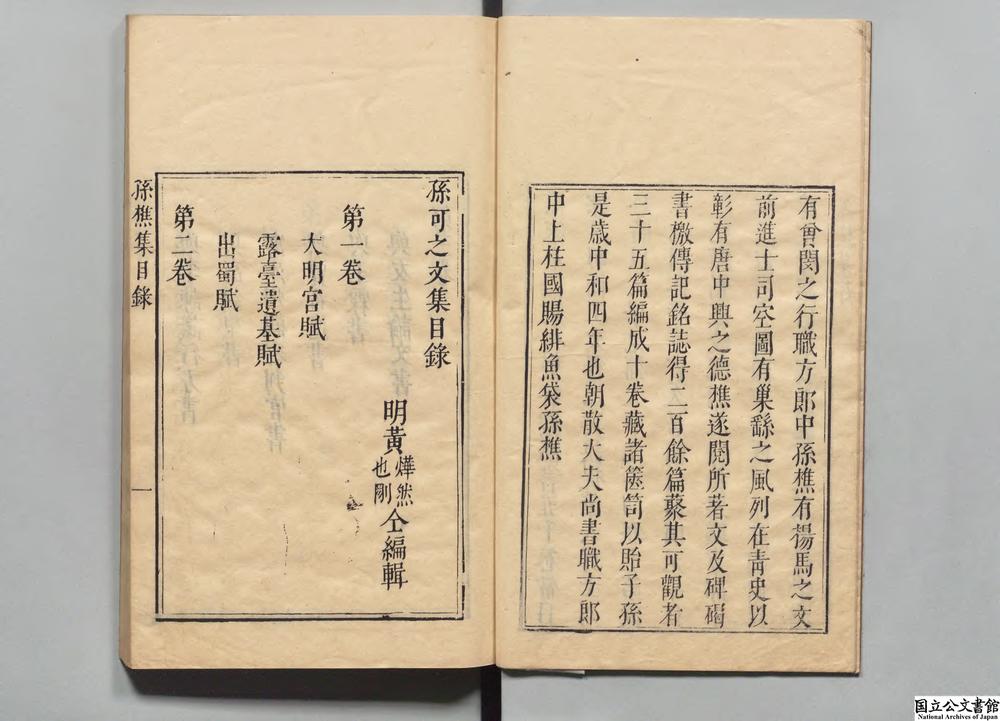 有曾閔之行職方郎中孫樵有揚馬之文
前進士司空圖有巢繇之風列在青史以
彰有唐中興之德樵遂閱所著文及碑碣
書檄傳記銘誌得二百餘篇藂其可觀者
三十五篇編成十卷藏諸篋笥以貽子孫
是歲中和四年也朝散大夫尚書職方郎
中上柱國賜緋魚袋孫樵
孫可之文集目錄
明黃燁然也剛仝編輯
第一卷
大明宮賦
露臺遺基賦
出蜀賦
第二卷
孫樵集目錄 一
国立公文書館
National Archives of Japan